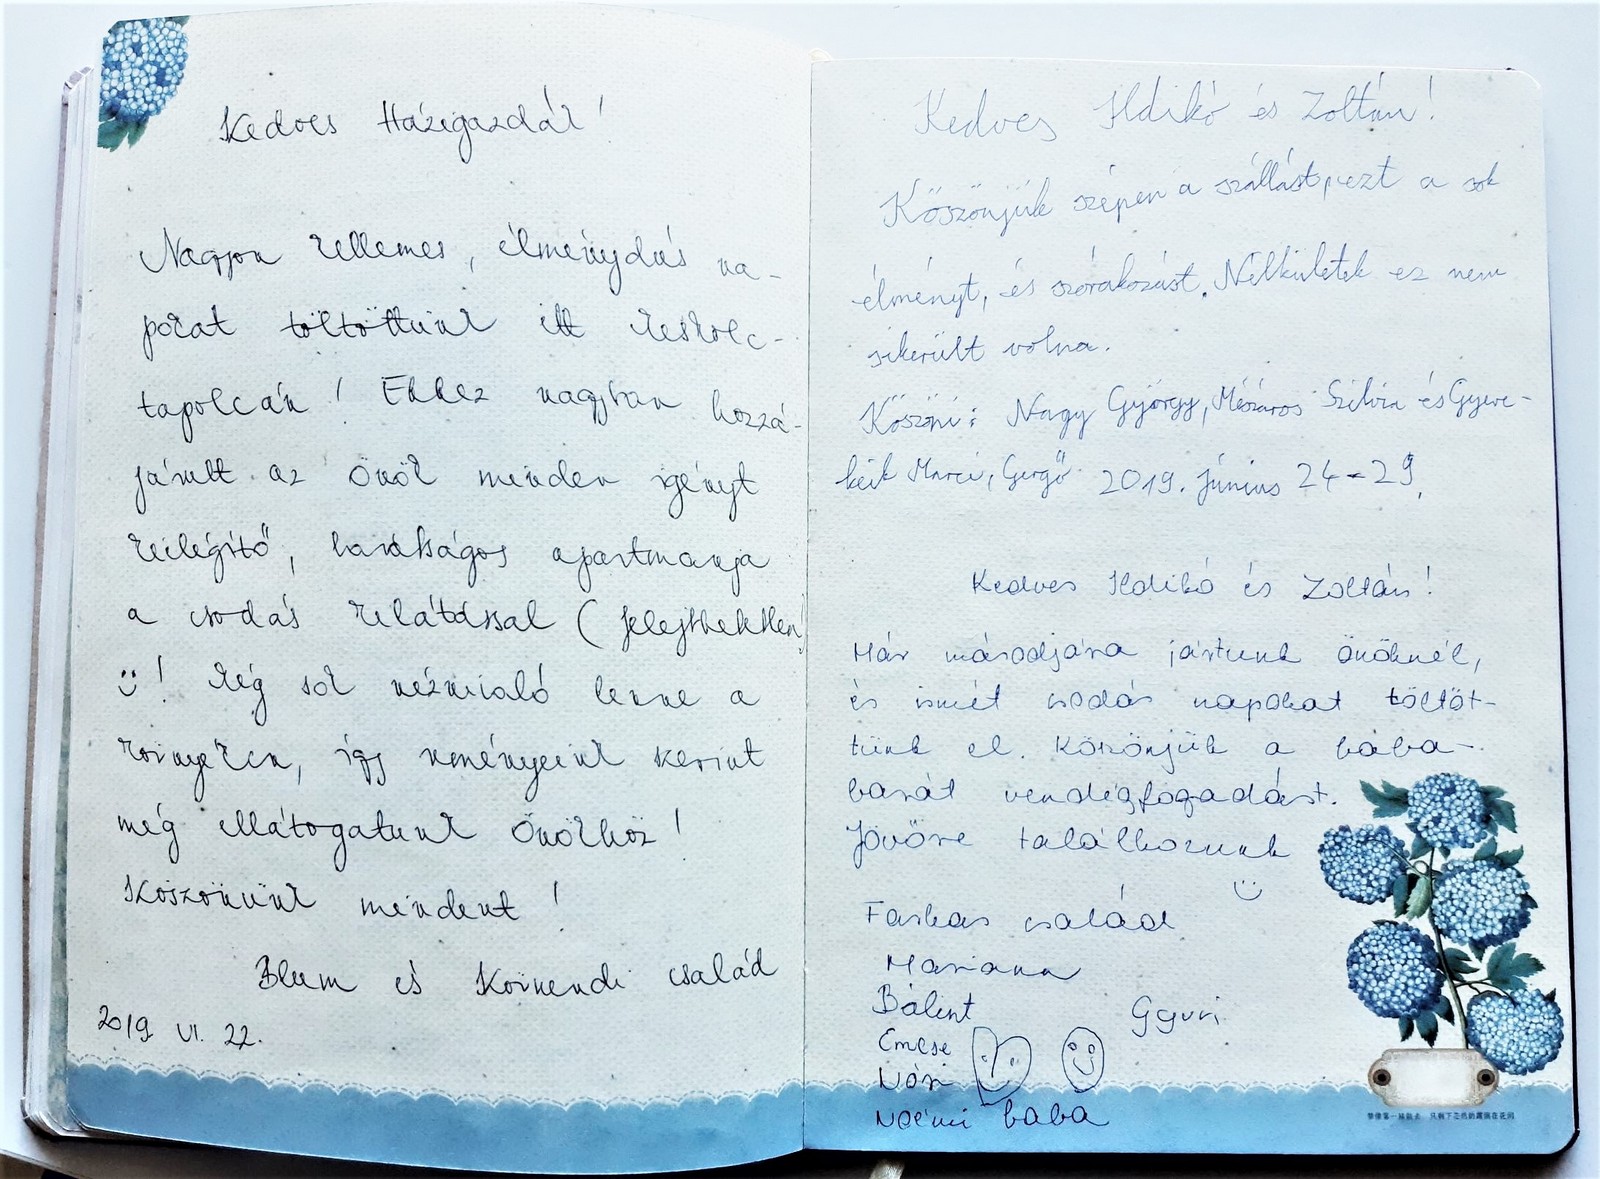 Kedves Házigazdák!
Nagyon kellemes, élménydús na-
pokat töltöttünk itt Miskolc-
tapolcán! Ehhez nagyban hozzá-
járult az Önök minden igényt
kielégítő, barátságos apartmanja
a csodás kilátással (felejthetetlen)
! Még sok néznivaló lenne a
környéken, így reményeink szerint
még ellátogatunk Önökhöz!
Köszönünk mindent!
Blum és Körmendi család
2019 VI. 22.
Kedves Ildikó és Zoltán!
Köszönjük szépen a szállást, ezt a sok
élményt, és szórakozást. Nélkületek ez nem
sikerült volna.
Köszöni: Nagy György, Mészáros Szilvia és Gyere-
keik Marci, Gergő 2019. június 24-29.
Kedves Ildikó és Zoltán!
Már másodjára jártunk önöknél,
és ismét csodás napokat töltöt-
tünk el. Köszönjük a baba-
barát vendégfogadást.
Jövőre találkozunk
Farkas család
Mariann
Bálint Gyuri
Emese
Nóri
Noémi baba